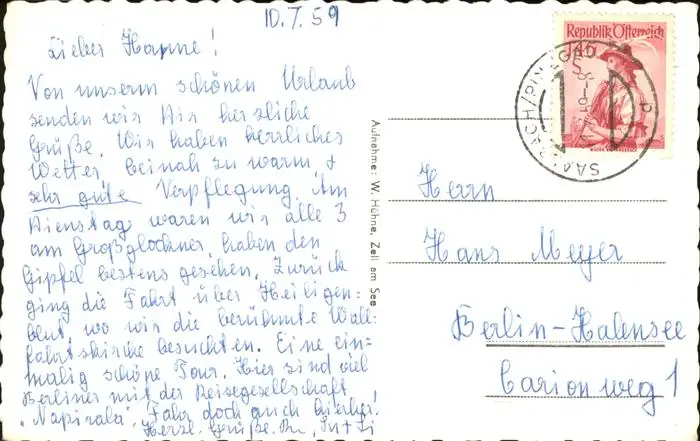 10.7.59
Lieber Hanne!
Von unserm schönen Urlaub
senden wir Dir herzliche
Grüße. Wir haben herrliches
Wetter, beinah zu warm, &
sehr gute Verpflegung. Am
Dienstag waren wir alle 3
am Großglockner, haben den
Gipfel bestens gesehen. Zurück
ging die Fahrt über Heiligen-
blut, wo wir die berühmte Wall-
fahrtskirche besuchten. Eine ein-
malig schöne Tour. Hier sind viel
Berliner mit der Reisegesellschaft
"Napirala". Fahr doch auch hierher!
Herzl. Grüße.
Aufnahme: W. Hühne, Zell am See
Republik Österreich
1.45
S
SAALBACH/PINZGAU
Herrn
Hans Meyer
Berlin-Halensee
Carionweg 1